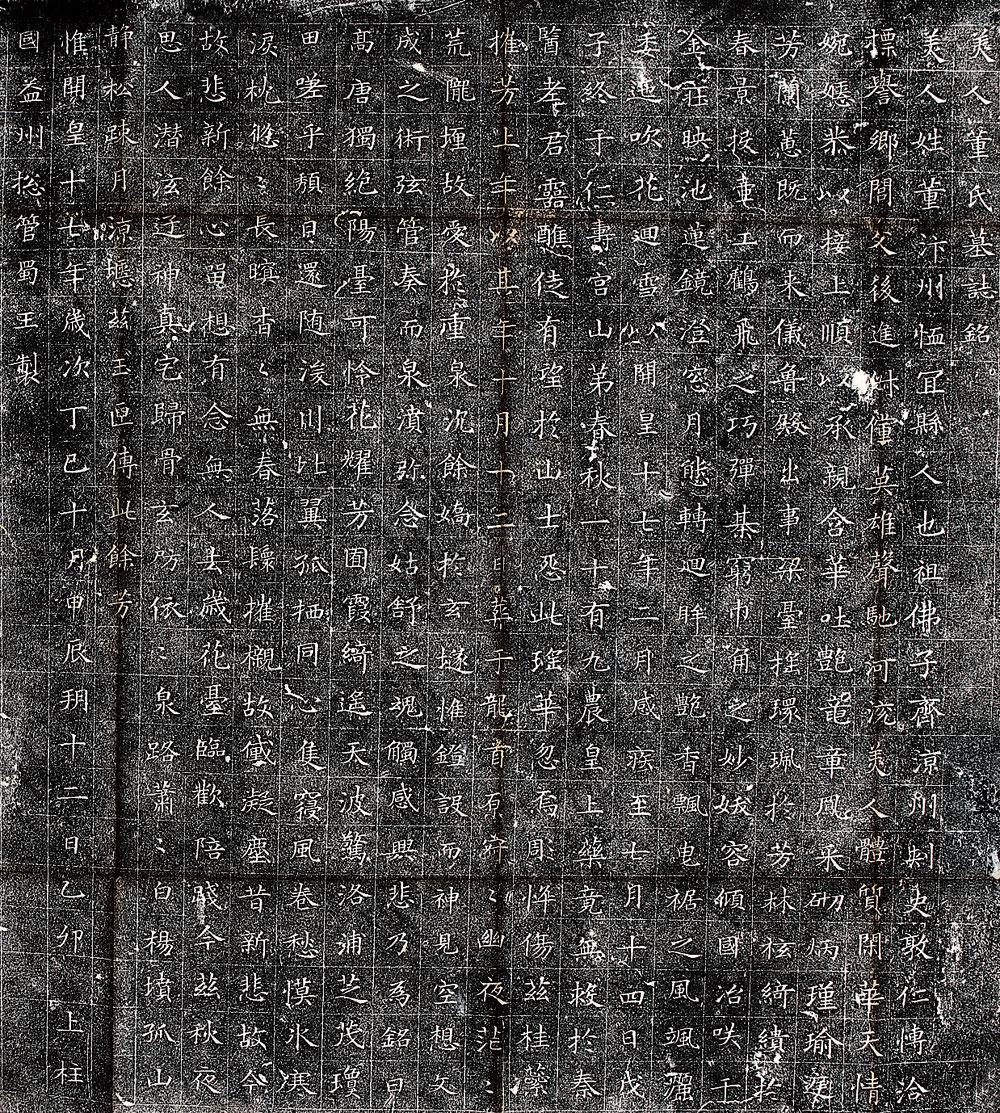 美人董氏墓誌銘
美人姓董汴州恤冝縣人也祖佛子齊涼州刾史敦仁愽洽
標譽鄉閭父後進俶儻英雄聲馳河兗美人體質閑華天情
婉嫕恭以接上順以承親含華吐艷竜章鳳采砌炳瑾瑜庭
芳蘭蕙既而来儀魯殿出事梁臺揺環珮於芳林袨綺繢於
春景投壷工鶴飛之巧彈棊窮巾角之妙妖容傾國冶咲千
金莊映池蓮鏡澄窓月態轉迴眸之艷香飄曳裾之風颯灑
委迆吹花迴雪以開皇十七年二月感疾至七月十四日戊
子終于仁壽宮山第春秋一十有九農皇上藥竟無救於秦
醫老君靈醮徒有望於山士怨此瑤華忽焉彫悴傷茲桂蘂
摧芳上年以其年十月十二日葬于龍首原寂〻幽夜茫〻
荒隴埋故愛於重泉沉餘嬌於玄燧惟鐙設而神見空想文
成之術弦管奏而泉濆弥念姑舒之魂觸感興悲乃為銘曰
高唐獨絕陽臺可怜花耀芳囿霞綺遙天波驚洛浦芝茂瓊
田嗟乎頹日還随浚川比翼孤栖同心隻寢風卷愁慔冰寒
淚枕悠〻長暝杳〻無春落鬟摧櫬故黛凝塵昔新悲故今
故悲新餘心留想有念無人去歲花臺臨歡陪踐今茲秋夜
思人潜泫迊神真宅歸骨玄房依〻泉路蕭〻白楊墳孤山
静松踈月涼瘞茲玉匣傳此餘芳
惟開皇十七年歲次丁巳十月甲辰朔十二日乙卯 上柱
國益州揔管蜀王製